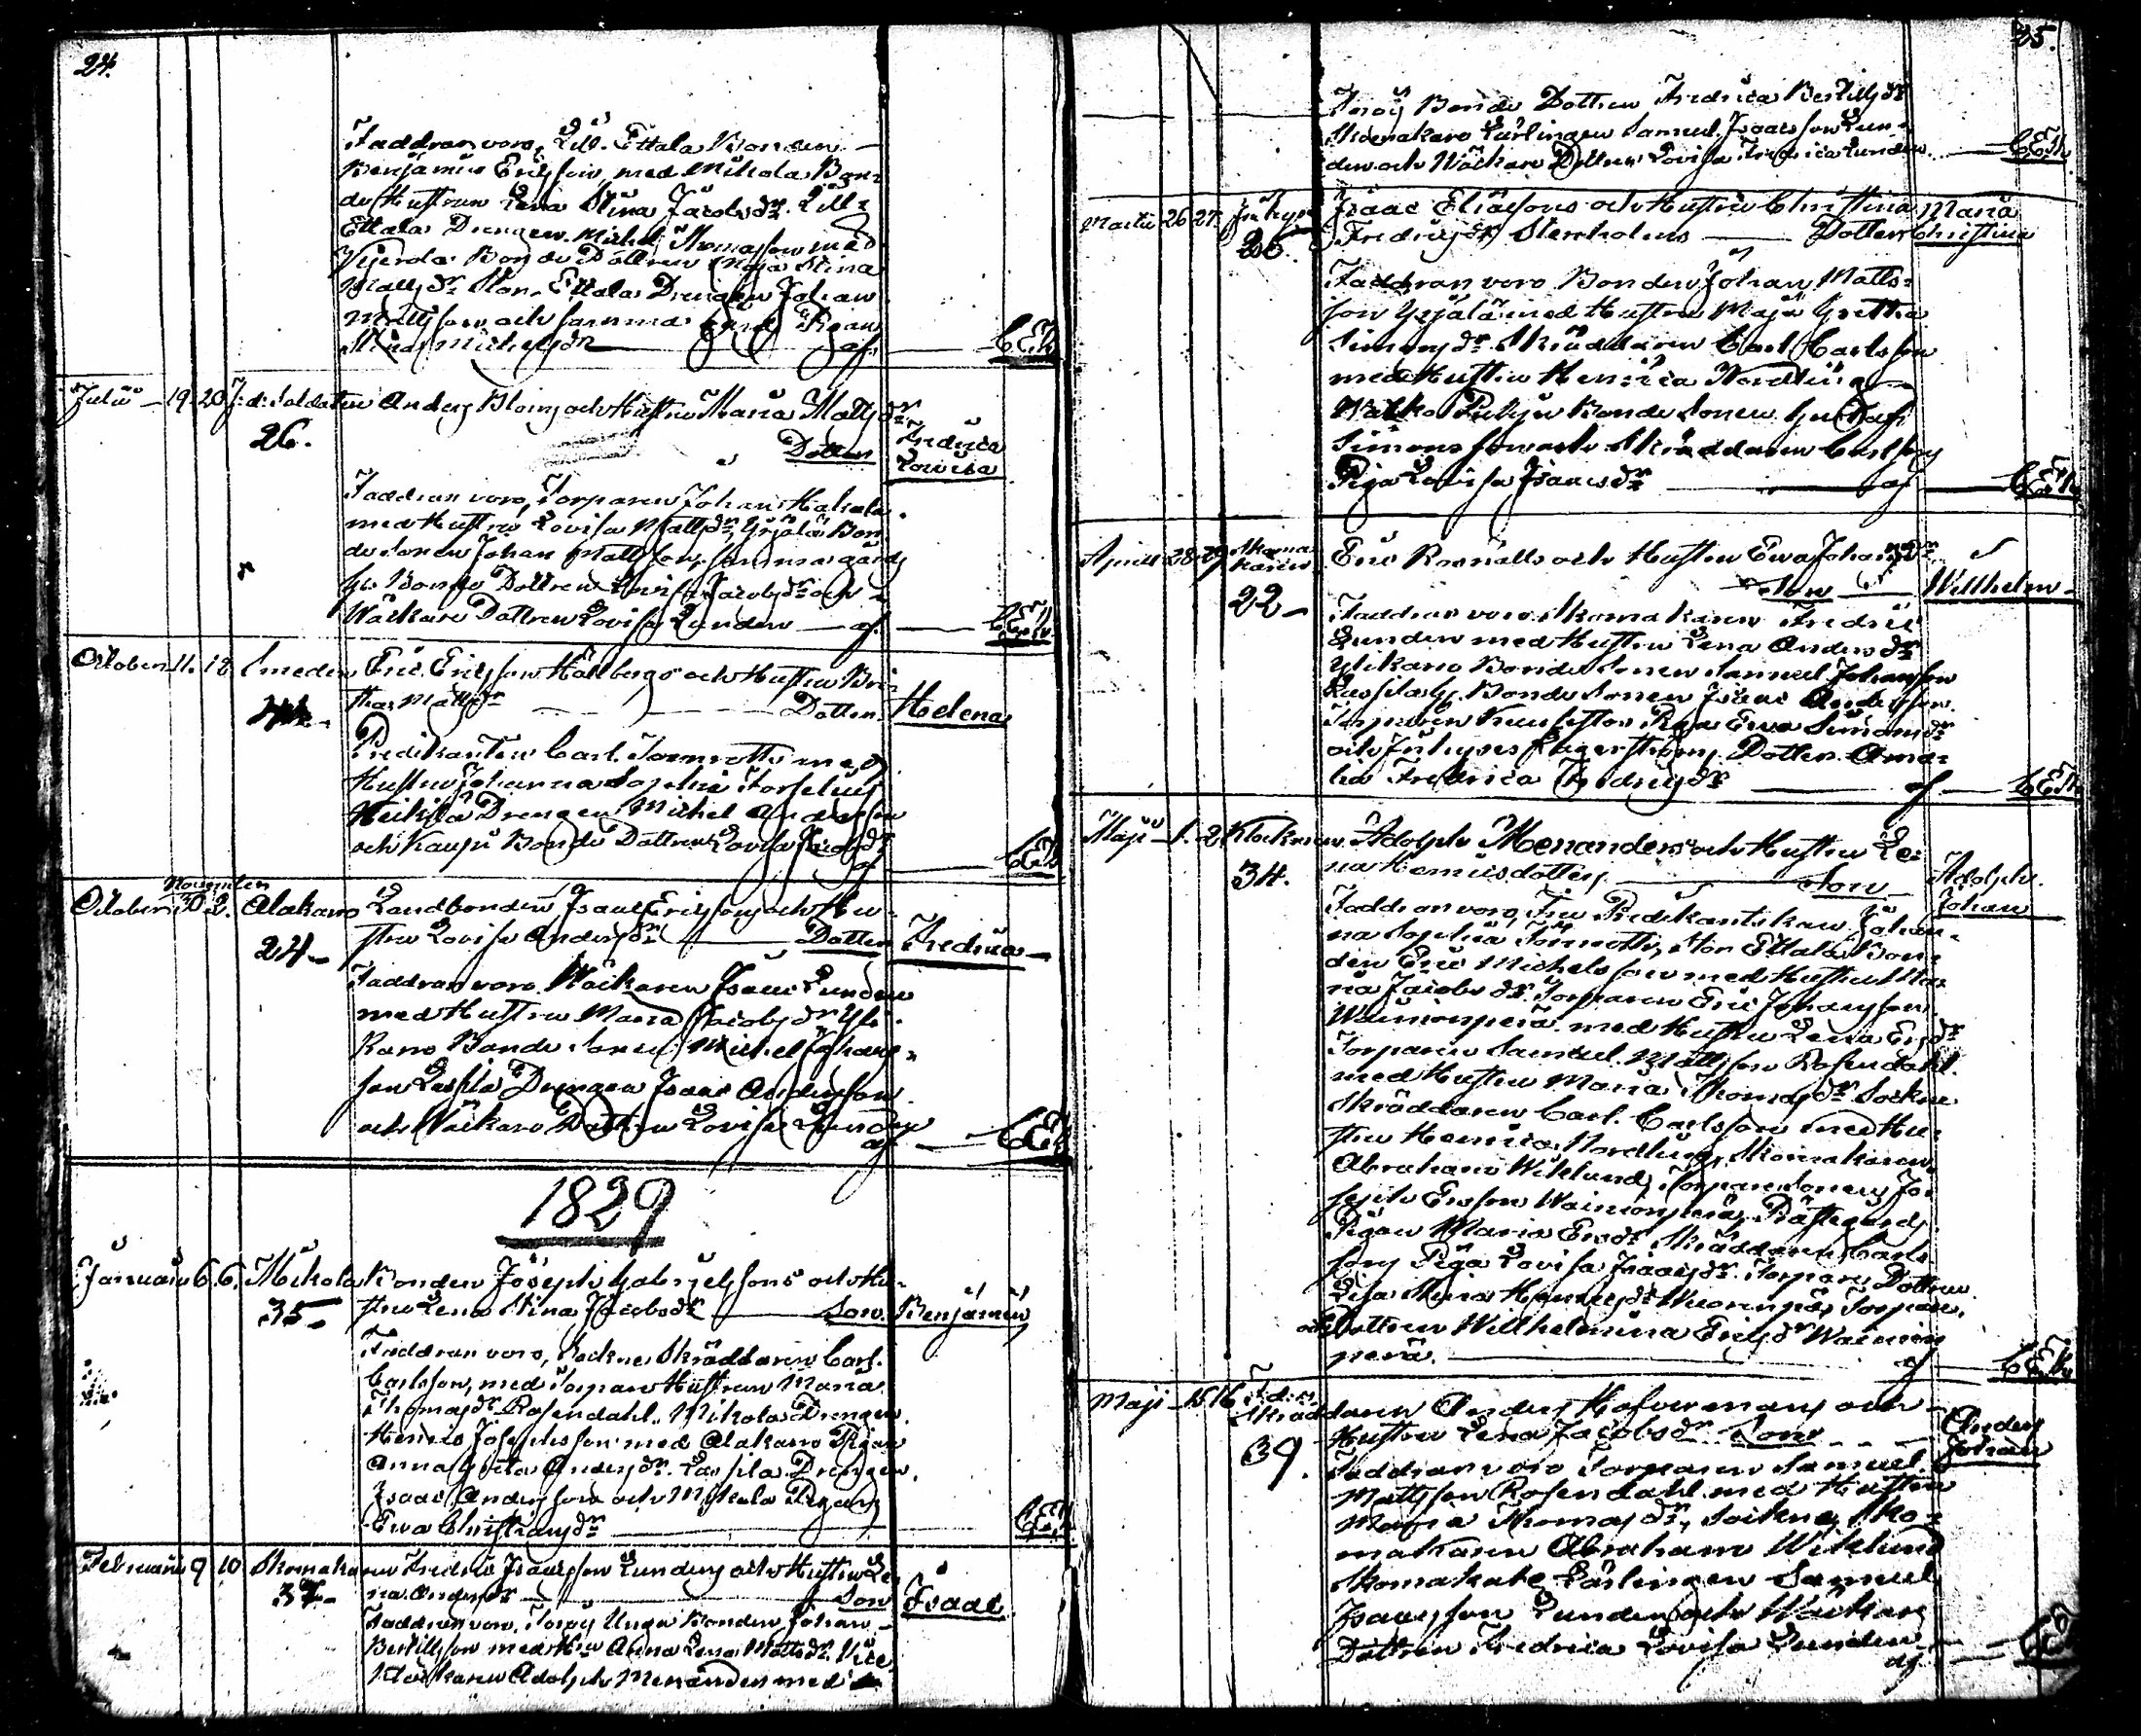 24.
Faddran voro, Lill. Ettala Bonden
Benjamin Ericsson, med Mikola Bon-
de Hustrun Lena Stina Jacobsdr. Lill-
Ettala Drengen Michel Thomasson med
Bonde Dottren Maja Stina
Mattsdr Stor-Ettala Drengen Johan
Mattsson, och samma gård Pigan
Stina Michelsdr af
CEN
Julii 19. 20. f: d: Soldaten Anders Bloms och Hustru Maria Mattsdr
26. Dotter Fredrica
Lovisa
Faddran voro, Torparen Johan Hakala
med Hustru Lovisa Mattsdr, Yrjälä Bon-
de Sonen Johan Mattsson, samma gårds
Bonde Dottren Lovisa Jacobsdr och
Wäckare Dottren Lovisa Lunden af
October 11. 12. Smeden Eric Ericsson Hallbergs och Hustru Bri-
tha Mattsdr Dotter Helena
Predikanten Carl Tornroth med
Hustru Johanna Sophia Forselius
Heikilä Drengen Michel Andersson
och Kauppi Bonde Dottren Lovisa
af
October 30 November 2. Alakano Landbonden Isaac Ericssons och Hu-
24 stru Lovisa Andersdr Dotter Fredrica
Faddran voro Wäckaren Isaac Lunden
med Hustru Maria Jacobsdr Yli-
kano Bonde Sonen Michel Johans-
son Lassila Drengen Isaac Andersson
och Wäckare Dottren Lovisa Lunden
af
1829
Januarii 6. 6. Mikola Bonden Joseph Gabrielssons och Hu-
35 stru Lena Stina Jacobsdr Son. Benjamin
Faddran voro, Sockne Skräddaren Carl
Carlsson, med Torpare Hustrun Maria
Thomasdr Rosendahl. Mikola Drengen
Henric Josephsson med Alakano Pigan
Anna Greta Andersdr. Lassila Drengen
Isaac Andersson och Mikola Pigan
Ewa Christiansdr
Februarii 9 10 Skomakaren Fredric Isaacsson Lundens och Hustru Le-
37 na Andersdr Son Isaac
Faddran voro, Torpj Unga Bonden Johan
Bertillsson med Hu Anna Lena Mattsdr. Vice
Klockaren Adolph Menander med
25.
Torpj Bonde Dottren Fredrica Bertillsdr
Skomakare Lärlingen Samuel Isaacsson Lun-
den och Wäckare Dottren Lovisa Fredrica Lunden
Martii 26 27. Inhyses Isaac Eliassons och Hustru Christina Maria
25. Fredricsdr Stenholms Dotter Christina
Faddran voro Bonden Johan Matts-
son Yrjälä med Hustru Maja Gretha
Simonsdr Skräddaren Carl Carlsson
med Hustru Henrica Nordling
Bonde Sonen Gustaf
Simonsson och Skräddaren Carlssons
Piga Lovisa Isaacsdr af
April 28 29 Skoma-
karen Eric Rosvalls och Hustru Ewa Johansdr
22 Son Willhelm
Faddran voro Skomakaren Fredric
Lunden med Hustru Lena Andersdr
Ylikano Bonde Sonen Samuel Johansson
Lassila Bonde Sonen Isaac Andersson
Torparen Piga Ewa Simonsdr
och Inhyses Lagerströms Dotter Ama-
lia Fredrica Fredricsdr af
Maji 1. 2. Klockaren Adolph Menanders och Hustru Le-
34. na Henricsdotters Son Adolph
Johan
Faddran voro, Fru Predikantskan Johan-
na Sophia Tornroth, Stor Ettala Bon-
den Eric Michelsson med Hustru Ma-
ria Jacobsdr. Torparen Eric Johansson
Wainionperä med Hustru Lena Ersdr
Torparen Samuel Mattsson Rosendahl
med Hustru Maria Thomasdr Sockne
Skräddaren Carl Carlsson med Hu-
stru Henrica Nordling, Skomakaren
Abraham Wiklund, Torpare Sonen Jo-
seph Ersson Wainionperä, Prästegårds
Pigan Maria Ersdr Skräddaren Carls-
sons Piga Lovisa Isaacsdr Torpare Dottren
Lisa Maria Henricsdr Torpare
och Dottren Willhelmina Ericsdr Wainion
perä. af
Maji 15 16 F. d:
Skräddaren Anders Hoffmans och
39. Hustru Lena Jacobsdr Son Anders
Johan
Faddran voro Torparen Samuel
Mattsson Rosendahl med Hustru
Maria Thomasdr, Sockne Sko-
makaren Abraham Wiklund
Skomakare Lärlingen Samuel
Isaacsson Lunden och Wäckare
Dottren Fredrica Lovisa Lunden
af